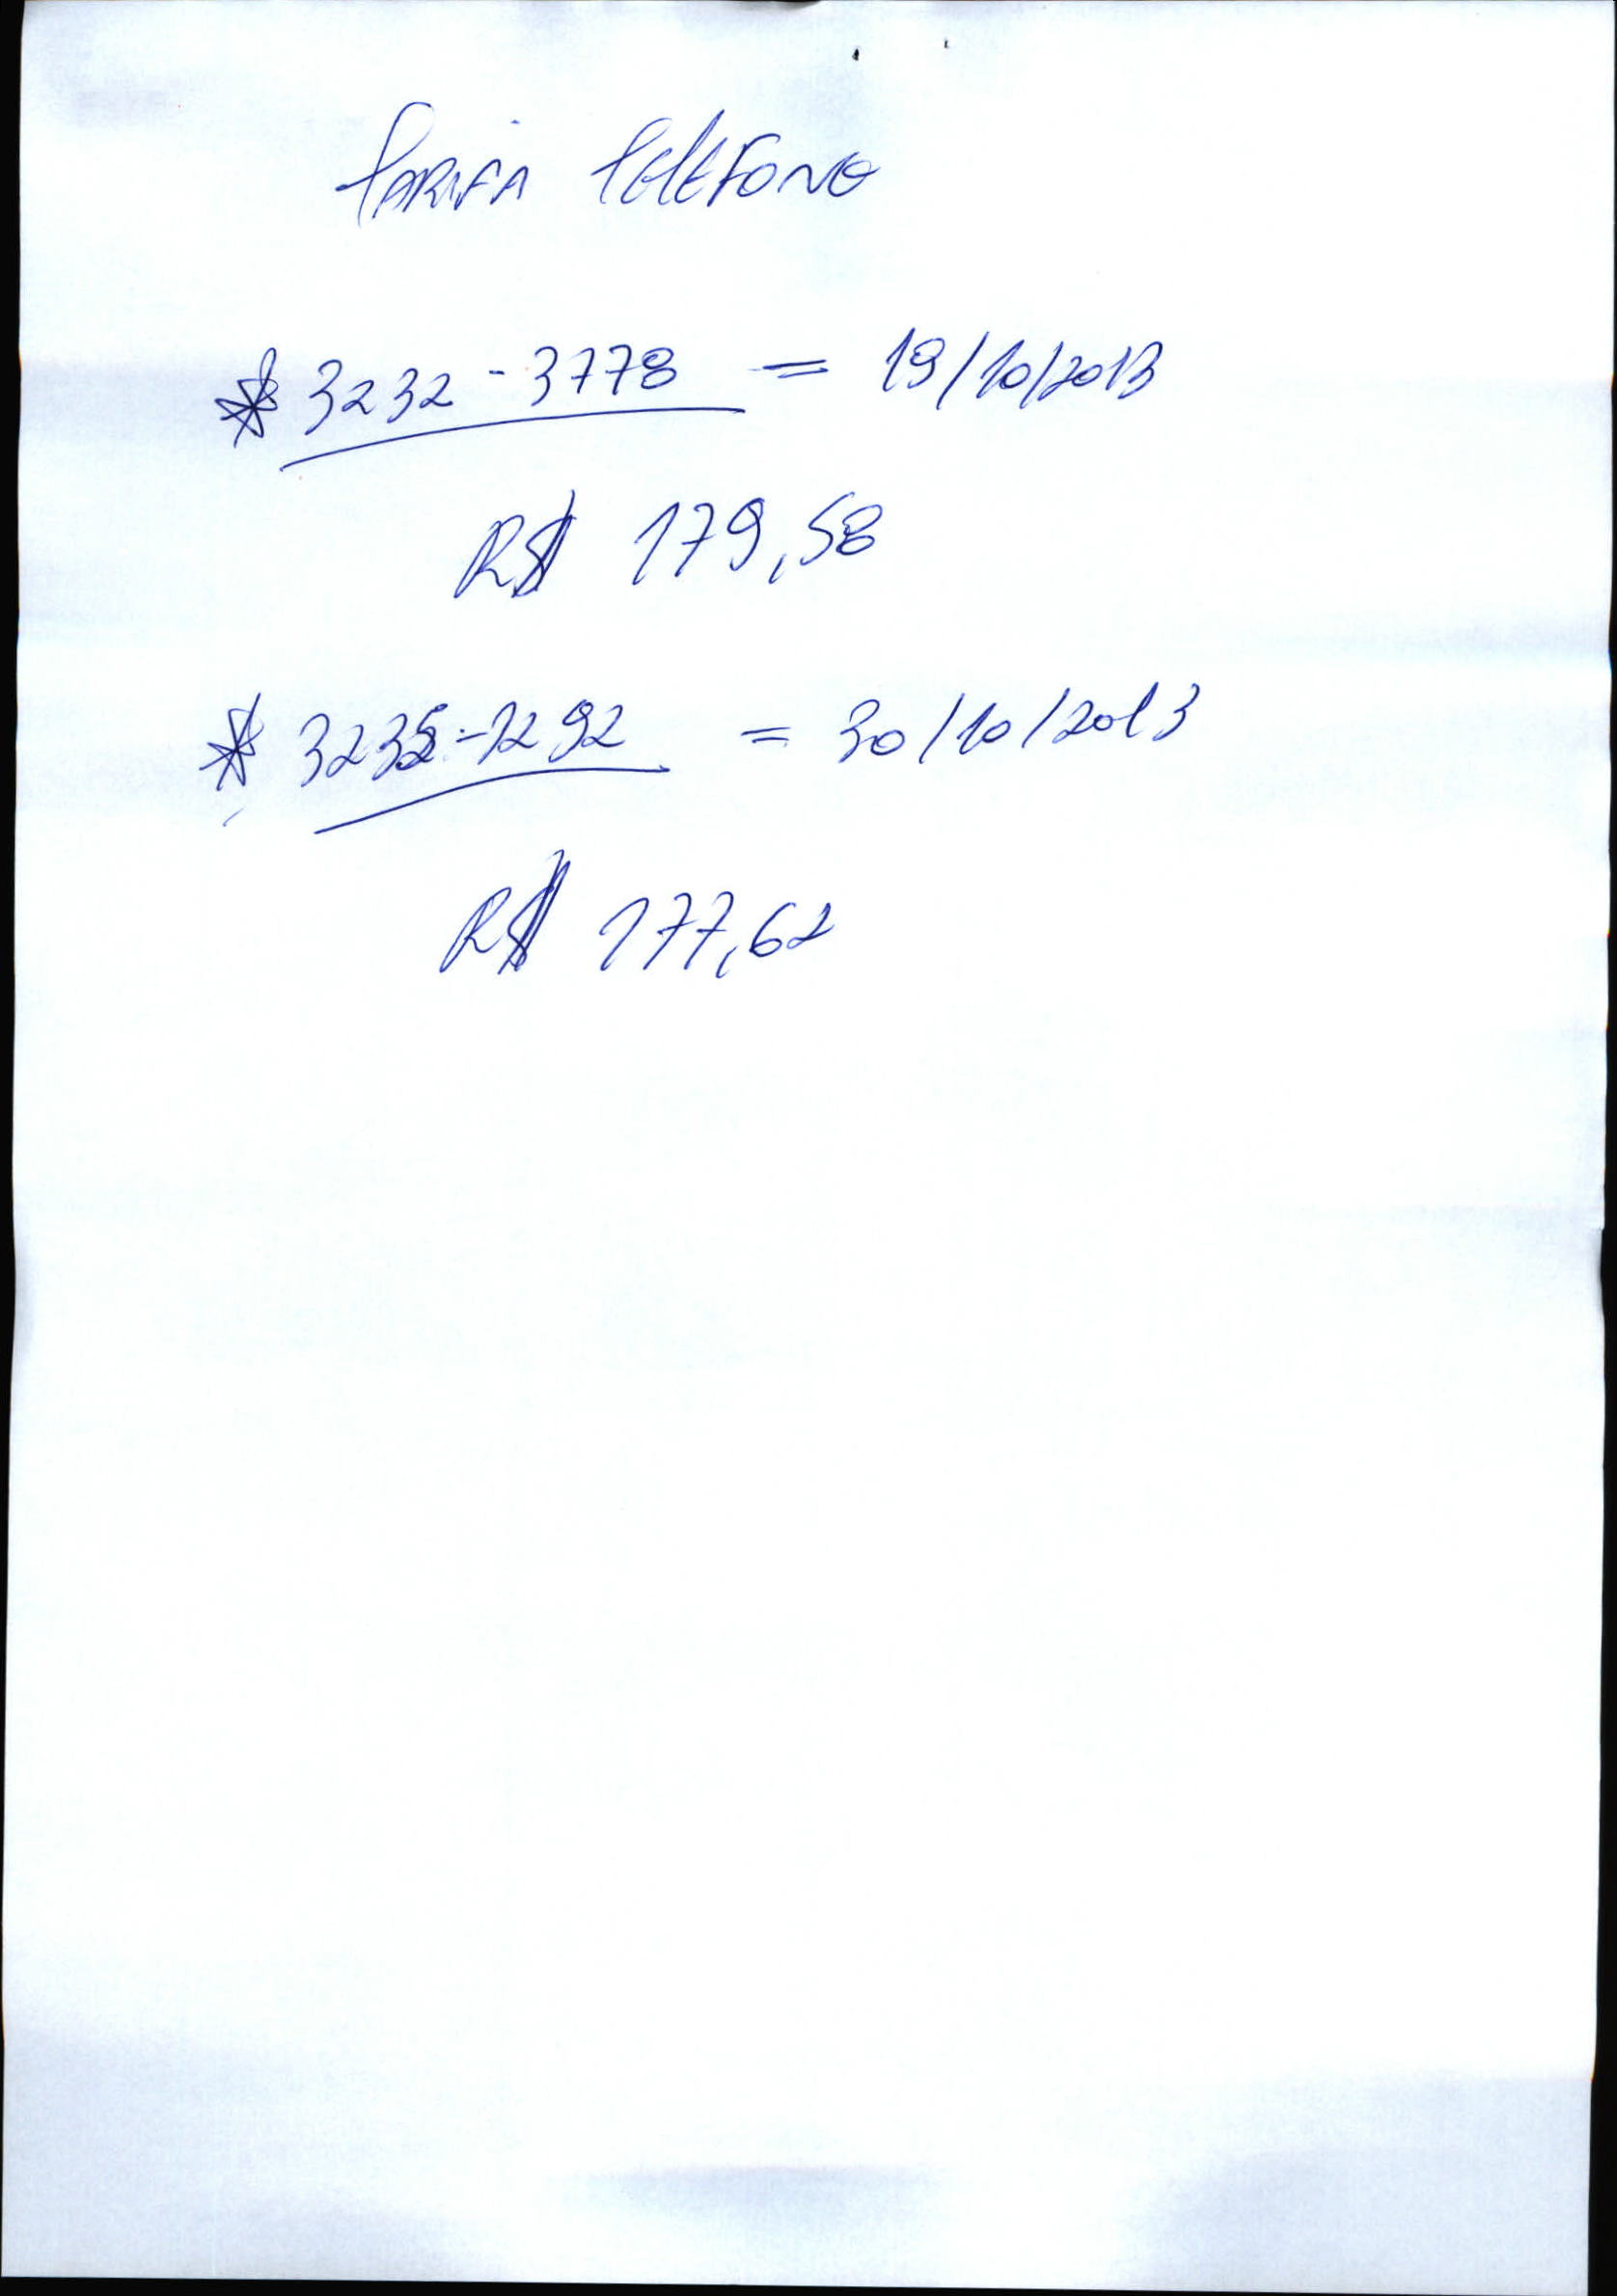 Tarifa Telefone
* 3232-3778 = 19/10/2013
R$ 179,58
* 3235-1292 = 30/10/2013
R$ 177,62